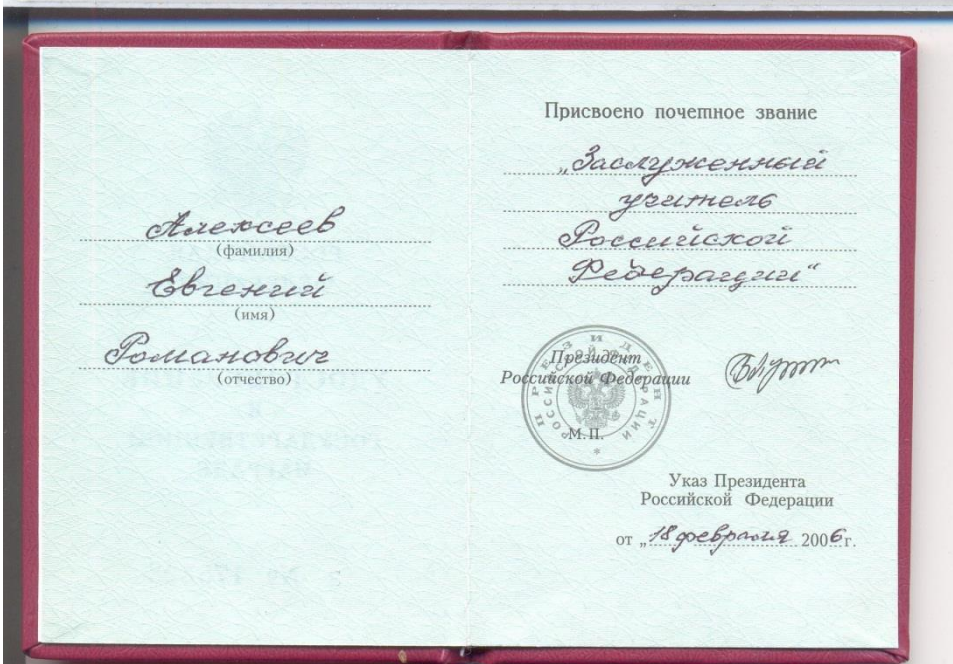 Алексеев
(фамилия)
Евгений
(имя)
Романович
(отчество)
Присвоено почетное звание
„Заслуженный
учитель
Российской
Федерации“
ПРЕЗИДЕНТ
РОССИЙСКОЙ ФЕДЕРАЦИИ
Президент
Российской Федерации
М.П.
Указ Президента
Российской Федерации
от „18 февраля 2006 г.